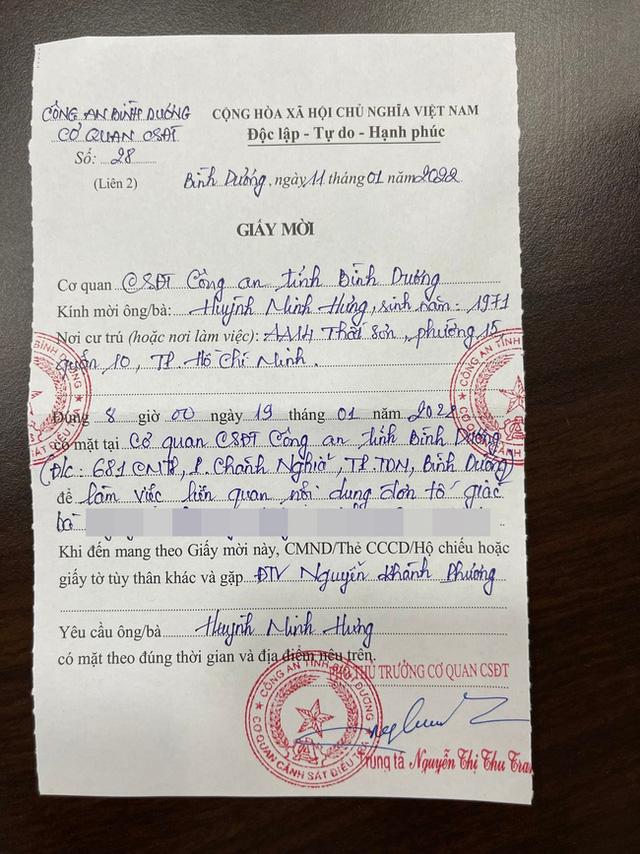 CÔNG AN BÌNH DƯƠNG
CƠ QUAN CSĐT
Số: 28
(Liên 2)
CỘNG HÒA XÃ HỘI CHỦ NGHĨA VIỆT NAM
Độc lập - Tự do - Hạnh phúc
Bình Dương, ngày 11 tháng 01 năm 2022
GIẤY MỜI
Cơ quan CSĐT Công an tỉnh Bình Dương
Kính mời ông/bà: Huỳnh Minh Hưng, sinh năm: 1971
Nơi cư trú (hoặc nơi làm việc): AA14 Thất Sơn, phường 15
quận 10, TP. Hồ Chí Minh.
Đúng 8 giờ 00 ngày 19 tháng 01 năm 2022
có mặt tại Cơ quan CSĐT Công an tỉnh Bình Dương
(Đ/c: 681 CMT8, P. Chánh Nghĩa, TP. TDM, Bình Dương)
để làm việc liên quan nội dung đơn tố giác
bà
Khi đến mang theo Giấy mời này, CMND/Thẻ CCCD/Hộ chiếu hoặc
giấy tờ tùy thân khác và gặp ĐTV Nguyễn Khánh Phương
Yêu cầu ông/bà Huỳnh Minh Hưng
có mặt theo đúng thời gian và địa điểm nêu trên.
PHÓ THỦ TRƯỞNG CƠ QUAN CSĐT
CÔNG AN TỈNH BÌNH DƯƠNG
CƠ QUAN CẢNH SÁT ĐIỀU TRA
Trung tá Nguyễn Thị Thu Tran